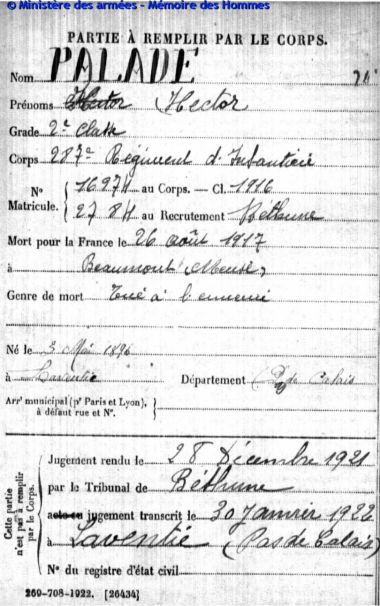 © Ministère des armées - Mémoire des Hommes
PARTIE À REMPLIR PAR LE CORPS.
Nom PALADE
Prénoms Hector Hector
Grade 2e Classe
Corps 287e Régiment d'Infanterie
N° Matricule. { 16974 au Corps. — Cl. 1916
2784 au Recrutement Béthune
Mort pour la France le 26 août 1917
à Beaumont (Meuse)
Genre de mort Tué à l'ennemi
Né le 3 Mai 1896
à Laventie Département Pas de Calais
Arrt municipal (pr Paris et Lyon), à défaut rue et N°.
Cette partie n'est pas à remplir par le Corps.
Jugement rendu le 28 Décembre 1921
par le Tribunal de Béthune
acte ou jugement transcrit le 30 Janvier 1922
à Laventie (Pas de Calais)
N° du registre d'état civil
269-708-1922. [26434]